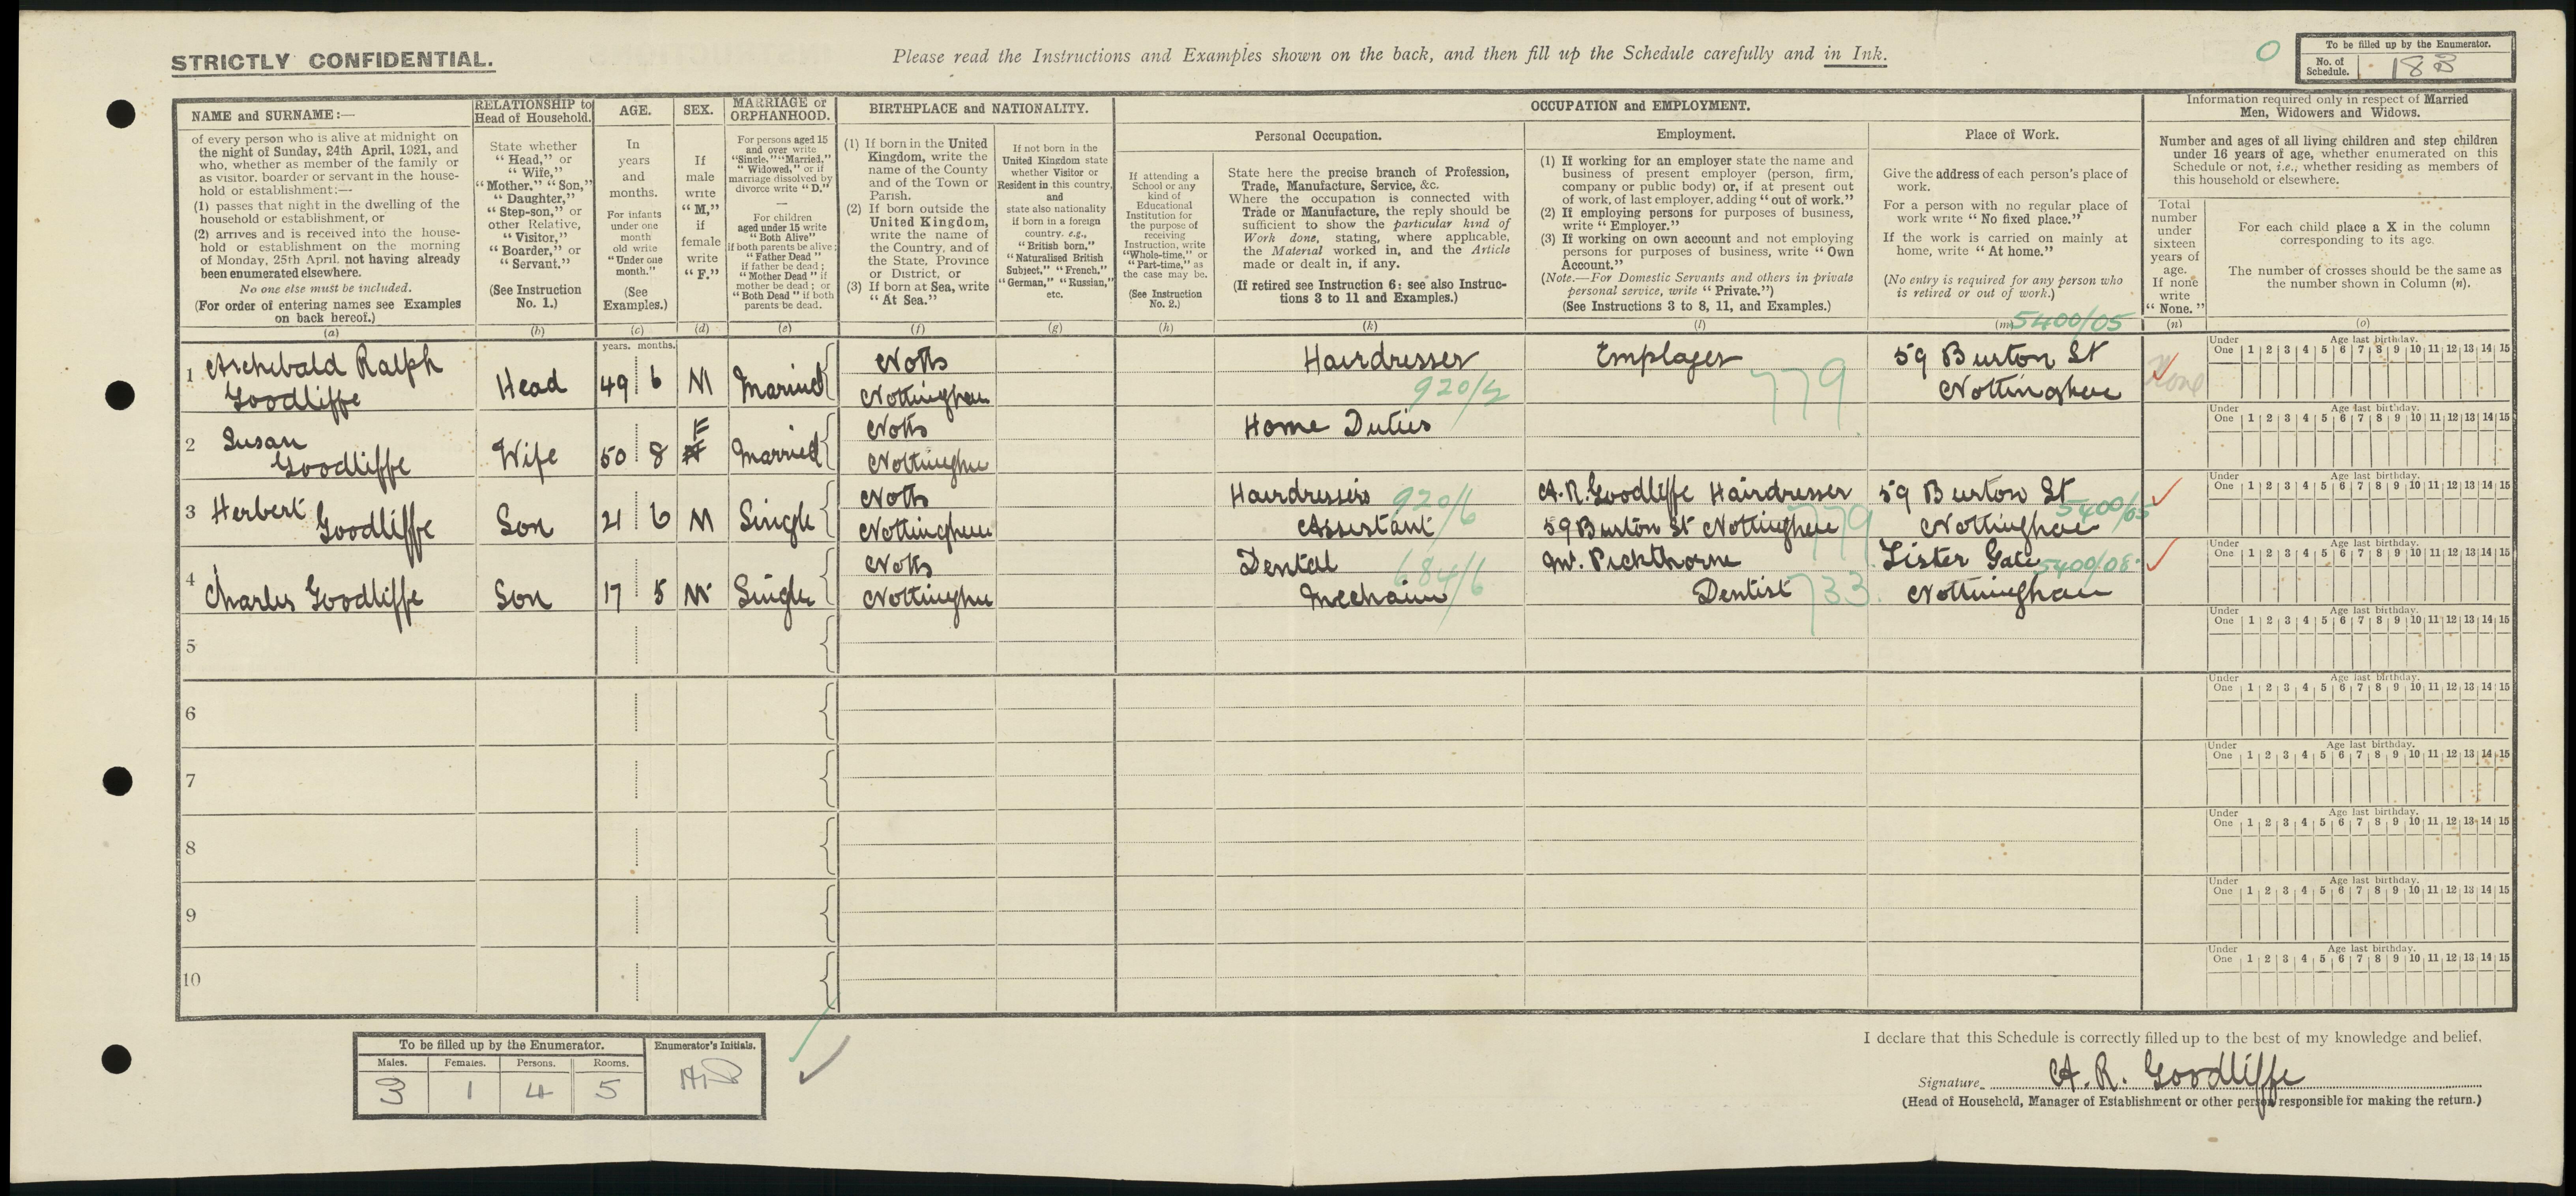 STRICTLY CONFIDENTIAL.
Please read the Instructions and Examples shown on the back, and then fill up the Schedule carefully and in Ink.
0
To be filled up by the Enumerator.
No. of Schedule. 183
NAME and SURNAME:—
of every person who is alive at midnight on
the night of Sunday, 24th April, 1921, and
who, whether as member of the family or
as visitor, boarder or servant in the house-
hold or establishment:—
(1) passes that night in the dwelling of the
household or establishment, or
(2) arrives and is received into the house-
hold or establishment on the morning
of Monday, 25th April, not having already
been enumerated elsewhere.
No one else must be included.
(For order of entering names see Examples
on back hereof.)
(a)
RELATIONSHIP to
Head of Household.
State whether
"Head," or
"Wife,"
"Mother." "Son,"
"Daughter,"
"Step-son," or
other Relative,
"Visitor,"
"Boarder," or
"Servant."
(See Instruction
No. 1.)
(b)
AGE.
In
years
and
months.
For infants
under one
month
old write
"Under one
month."
(See
Examples.)
(c)
SEX.
If
male
write
"M,"
if
female
write
"F."
(d)
MARRIAGE or
ORPHANHOOD.
For persons aged 15
and over write
"Single," "Married,"
"Widowed," or if
marriage dissolved by
divorce write "D."
—
For children
aged under 15 write
"Both Alive"
if both parents be alive;
"Father Dead"
if father be dead;
"Mother Dead" if
mother be dead; or
"Both Dead" if both
parents be dead.
(e)
BIRTHPLACE and NATIONALITY.
(1) If born in the United
Kingdom, write the
name of the County
and of the Town or
Parish.
(2) If born outside the
United Kingdom,
write the name of
the Country, and of
the State, Province
or District, or
(3) If born at Sea, write
"At Sea."
(f)
If not born in the
United Kingdom state
whether Visitor or
Resident in this country,
and
state also nationality
if born in a foreign
country. e.g.,
"British born,"
"Naturalised British
Subject," "French,"
"German," "Russian,"
etc.
(g)
OCCUPATION and EMPLOYMENT.
If attending a
School or any
kind of
Educational
Institution for
the purpose of
receiving
Instruction, write
"Whole-time," or
"Part-time," as
the case may be.
(See Instruction
No. 2.)
(h)
Personal Occupation.
State here the precise branch of Profession,
Trade, Manufacture, Service, &c.
Where the occupation is connected with
Trade or Manufacture, the reply should be
sufficient to show the particular kind of
Work done, stating, where applicable,
the Material worked in, and the Article
made or dealt in, if any.
(If retired see Instruction 6: see also Instruc-
tions 3 to 11 and Examples.)
(k)
Employment.
(1) If working for an employer state the name and
business of present employer (person, firm,
company or public body) or, if at present out
of work, of last employer, adding "out of work."
(2) If employing persons for purposes of business,
write "Employer."
(3) If working on own account and not employing
persons for purposes of business, write "Own
Account."
(Note.—For Domestic Servants and others in private
personal service, write "Private.")
(See Instructions 3 to 8, 11, and Examples.)
(l)
Place of Work.
Give the address of each person's place of
work.
For a person with no regular place of
work write "No fixed place."
If the work is carried on mainly at
home, write "At home."
(No entry is required for any person who
is retired or out of work.)
(m) 5400/05
Information required only in respect of Married
Men, Widowers and Widows.
Number and ages of all living children and step children
under 16 years of age, whether enumerated on this
Schedule or not, i.e., whether residing as members of
this household or elsewhere.
Total
number
under
sixteen
years of
age.
If none
write
"None."
(n)
For each child place a X in the column
corresponding to its age.
The number of crosses should be the same as
the number shown in Column (n).
(o)
years. months.
1 Archibald Ralph
Goodliffe
Head 49 6 M Married
Notts
Nottingham
Hairdresser
920/2
Employer
779
59 Burton St
Nottingham
None
Under One 1 2 3 4 5 6 7 8 9 10 11 12 13 14 15
Age last birthday.
2 Susan
Goodliffe
Wife 50 8 F Married
Notts
Nottingham
Home Duties
Under One 1 2 3 4 5 6 7 8 9 10 11 12 13 14 15
Age last birthday.
3 Herbert
Goodliffe
Son 21 6 M Single
Notts
Nottingham
Hairdressers 920/6
Assistant
A. R. Goodliffe Hairdresser
59 Burton St Nottingham 779
59 Burton St
Nottingham 5400/05
Under One 1 2 3 4 5 6 7 8 9 10 11 12 13 14 15
Age last birthday.
4 Charles Goodliffe
Son 17 5 M Single
Notts
Nottingham
Dental 684/6
Mechanic
Mr. Pickthorne
Dentist 733
Lister Gate 5400/08
Nottingham
Under One 1 2 3 4 5 6 7 8 9 10 11 12 13 14 15
Age last birthday.
5
Under One 1 2 3 4 5 6 7 8 9 10 11 12 13 14 15
Age last birthday.
6
Under One 1 2 3 4 5 6 7 8 9 10 11 12 13 14 15
Age last birthday.
7
Under One 1 2 3 4 5 6 7 8 9 10 11 12 13 14 15
Age last birthday.
8
Under One 1 2 3 4 5 6 7 8 9 10 11 12 13 14 15
Age last birthday.
9
Under One 1 2 3 4 5 6 7 8 9 10 11 12 13 14 15
Age last birthday.
10
Under One 1 2 3 4 5 6 7 8 9 10 11 12 13 14 15
Age last birthday.
To be filled up by the Enumerator.
Enumerator's Initials.
Males. Females. Persons. Rooms.
3 1 4 5
I declare that this Schedule is correctly filled up to the best of my knowledge and belief.
Signature A. R. Goodliffe
(Head of Household, Manager of Establishment or other person responsible for making the return.)